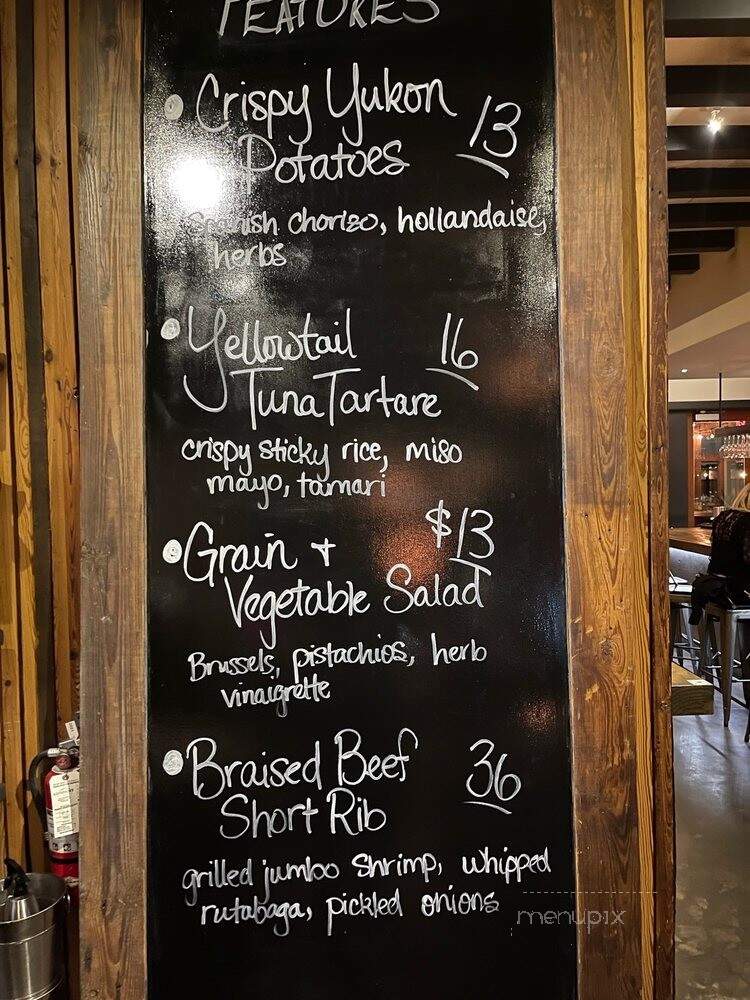 FEATURES
Crispy Yukon
Potatoes 13
Spanish chorizo, hollandaise,
herbs
Yellowtail 16
Tuna Tartare
crispy sticky rice, miso
mayo, tamari
Grain + $13
Vegetable Salad
Brussels, pistachios, herb
vinaigrette
Braised Beef 36
Short Rib
grilled jumbo shrimp, whipped
rutabaga, pickled onions
menupix